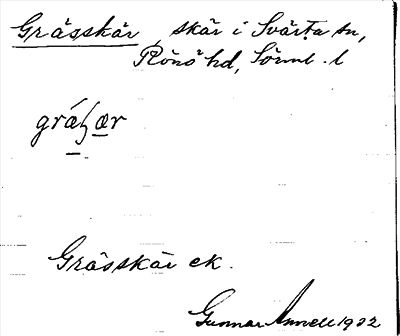 Grässkär skär i Svärta sn,
Rönö hd, Sörml. l
Grässkär ek.
Gunnar Annell 1932